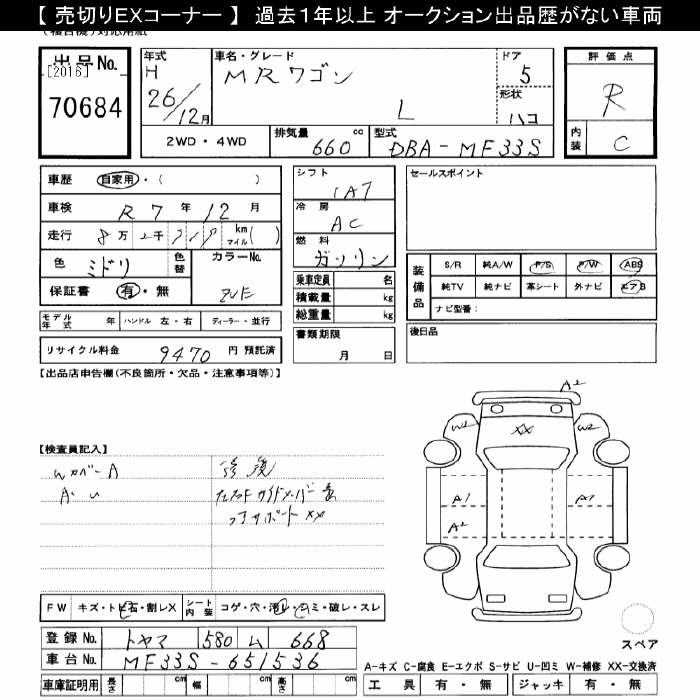 【 売切りEXコーナー 】 過去1年以上 オークション出品歴がない車両
(複合機)対応用紙
出品No.
[2016]
70684
年式
H
26/12月
車名・グレード
MRワゴン
L
ドア
5
形状
ハコ
評価点
R
内装
C
2WD・4WD
排気量
660 cc
型式
DBA-MF33S
車歴 自家用・( )
車検 R 7 年 12 月
走行 8万2千 km マイル( )
色 ミドリ
色替
カラーNo.
ZVE
保証書 有・無
モデル年式 年 ハンドル 左・右 ディーラー・並行
リサイクル料金 9470 円 預託済
シフト
IAT
冷房
AC
燃料
ガソリン
乗車定員 名
積載量 kg
総重量 kg
書類期限
月 日
セールスポイント
装備品
S/R 純A/W P/S P/W ABS
純TV 純ナビ 革シート 外ナビ エアB
ナビ型番:
後日品
【出品店申告欄(不良箇所・欠品・注意事項等)】
【検査員記入】
WカバーA
A・U
修復
コアサポートXX
A2
W2
XX
W2
A1
A1
A2
スペア
FW キズ・トビ石・割レX
シート内装 コゲ・穴・汚レ・シミ・破レ・スレ
登録No. トヤマ 580 ム 668
車台No. MF33S-651536
車庫証明用 長さ cm 幅 cm 高さ cm
A-キズ C-腐食 E-エクボ S-サビ U-凹ミ W-補修 XX-交換済
工具 有・無 ジャッキ 有・無